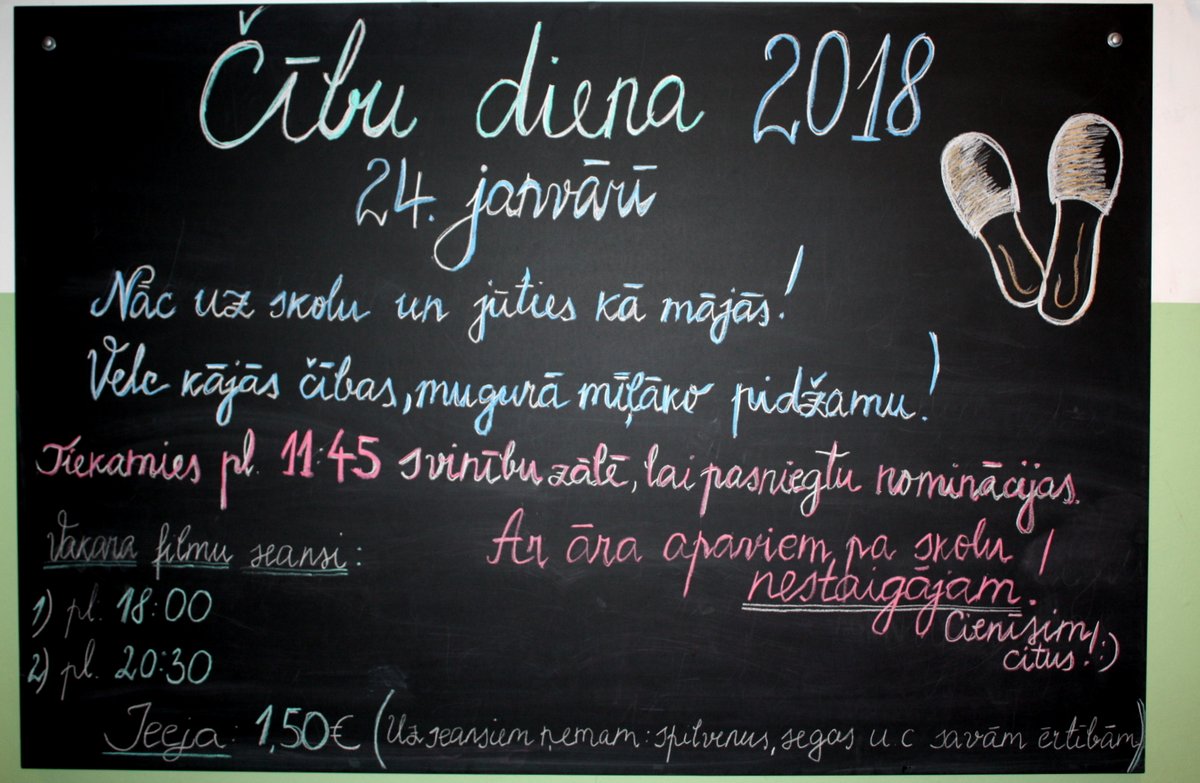 Čību diena 2018
24. janvārī
Nāc uz skolu un jūties kā mājās!
Velc kājās čības, mugurā mīļāko pidžamu!
Tiekamies pl. 11:45 svinību zālē, lai pasniegtu nominācijas.
Ar āra apaviem pa skolu
nestaigājam!
Cienīsim
citus! :)
Vakara filmu seansi:
1) pl. 18:00
2) pl. 20:30
Ieeja: 1,50€ (Uz seansiem ņemam: spilvenus, segas u c savām ērtībām)